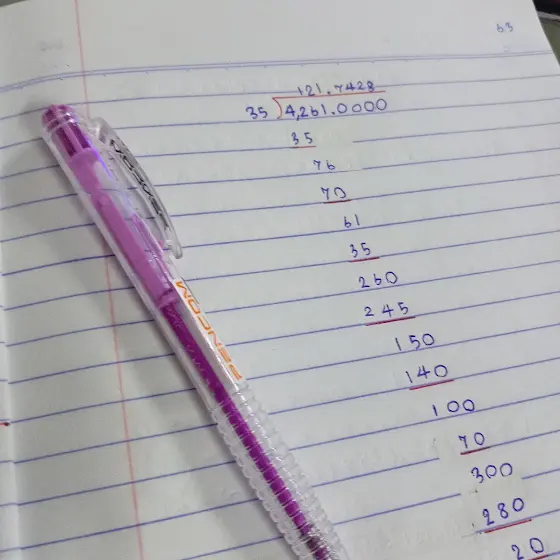 63
121.7428
35 4,261.0000
35
76
70
61
35
260
245
150
140
100
70
300
280
20
PENCOM